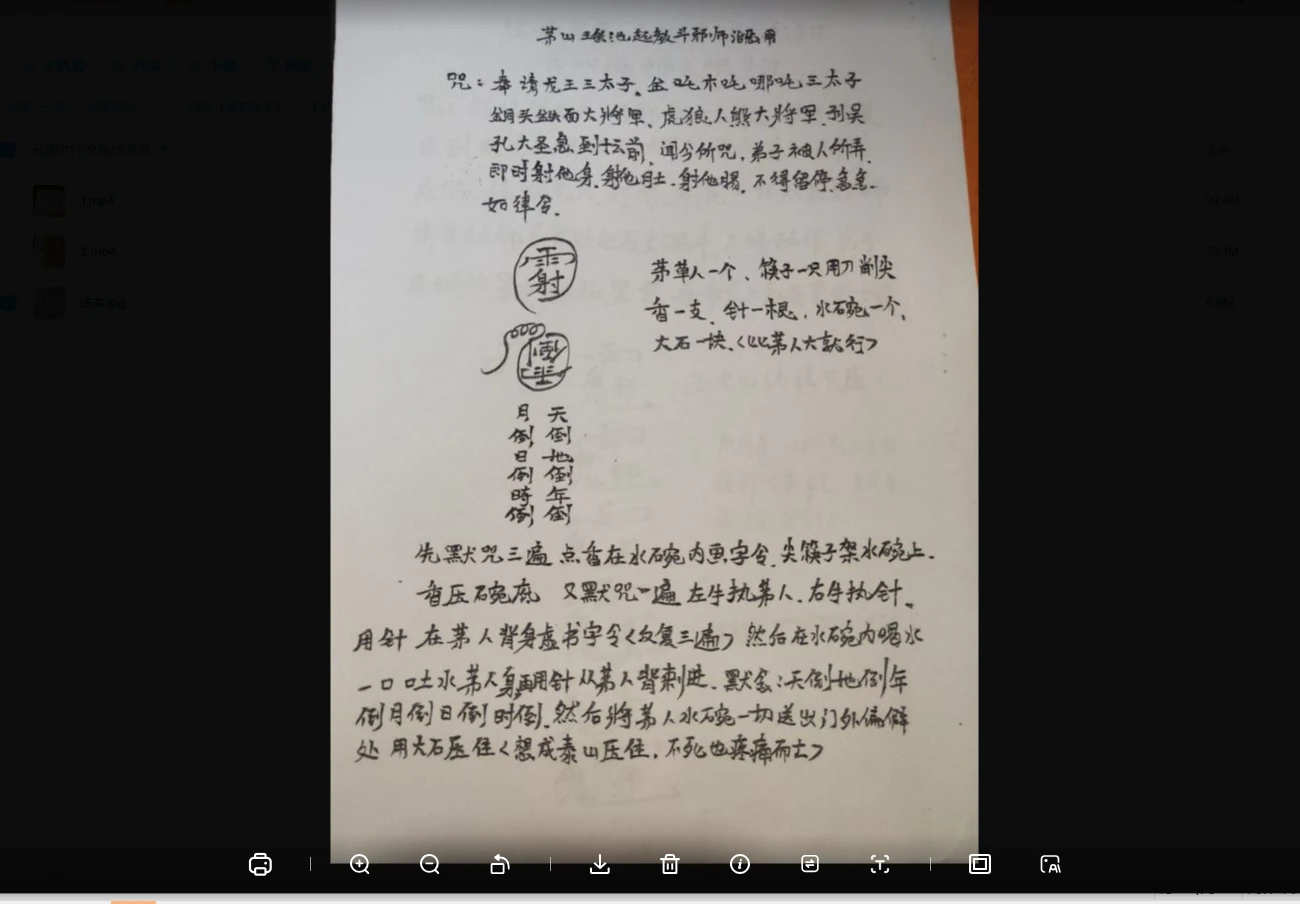 咒：奉请龙王三太子、金吒木吒哪吒三太子
铜头铁面大將軍、虎狼人熊大將軍、孙吴
孔大圣急到坛前、闻今所咒，弟子被人所弄，
即时射他身、射他肚、射他肠、不得留停、急急
如律令．
雷射
茅草人一个、筷子一只用刀削尖
香一支、针一根，水碗一个，
大石一块、〈比茅人大就行〉
倒
月 天
倒 倒
日 地
倒 倒
時 年
倒 倒
先默咒三遍 点香在水碗内画字令、尖筷子架水碗上．
香压碗底 又默咒一遍 左手执茅人、右手执针、
用针 在茅人背身虚书字令〈反复三遍〉然后在水碗内喝水
一口 吐水茅人身 再用针从茅人背刺进、默念：天倒地倒年
倒月倒日倒时倒、然后將茅人水碗一切送出门外偏僻
处 用大石压住〈想成泰山压住，不死也疼痛而士〉
1.mp4
2.mp4